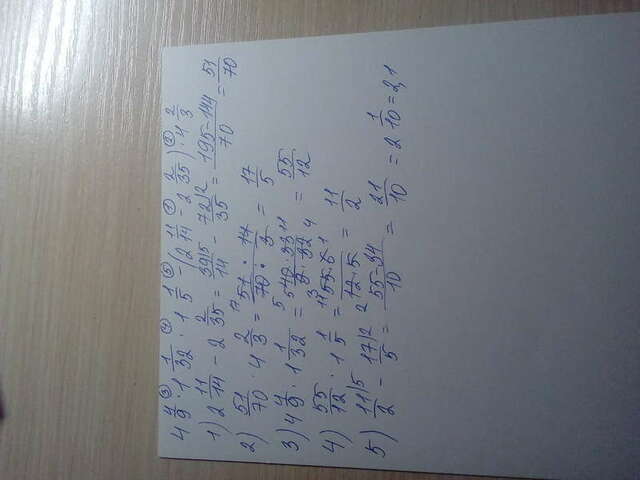 4 4/9 ③ · 1 1/32 ④ · 1 1/5 ⑤ - (2 11/14 ① - 2 2/35) ② · 4 2/3
1) 2 11/14 - 2 2/35 = 39/14 - 72/35 = 195-144/70 = 51/70
2) 51/70 · 4 2/3 = 51 · 14/70 · 3 = 17/5
3) 4 4/9 · 1 1/32 = 40 · 33/9 · 32 = 55/12
4) 55/12 · 1 1/5 = 55 · 6/12 · 5 = 11/2
5) 11/2 - 17/5 = 55-34/10 = 21/10 = 2 1/10 = 2,1